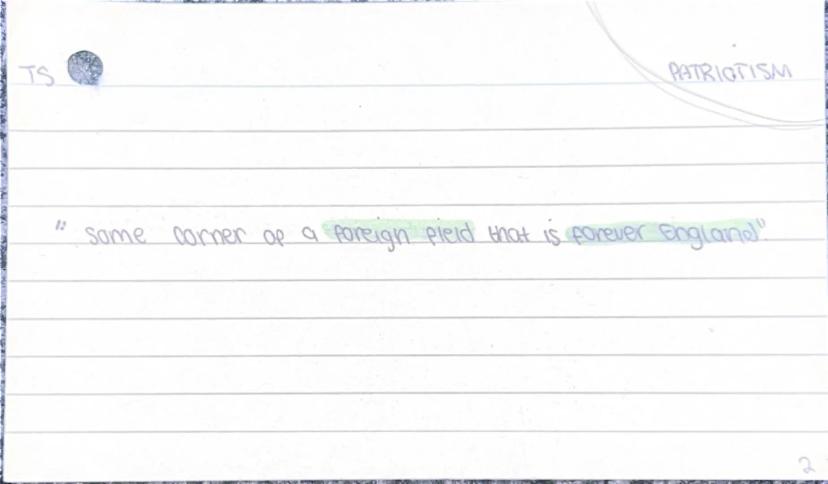 TS
PATRIOTISM
" some corner of a foreign field that is forever England"
2